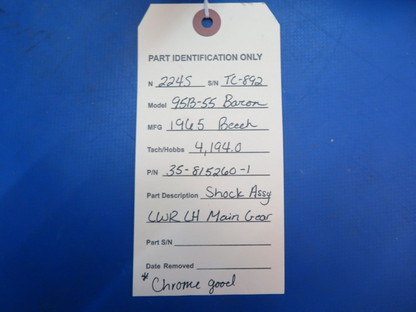 PART IDENTIFICATION ONLY
N 224S S/N TC-892
Model 95B-55 Baron
MFG 1965 Beech
Tach/Hobbs 4,194.0
P/N 35-815260-1
Part Description Shock Assy
LWR LH Main Gear
Part S/N
Date Removed
* Chrome good